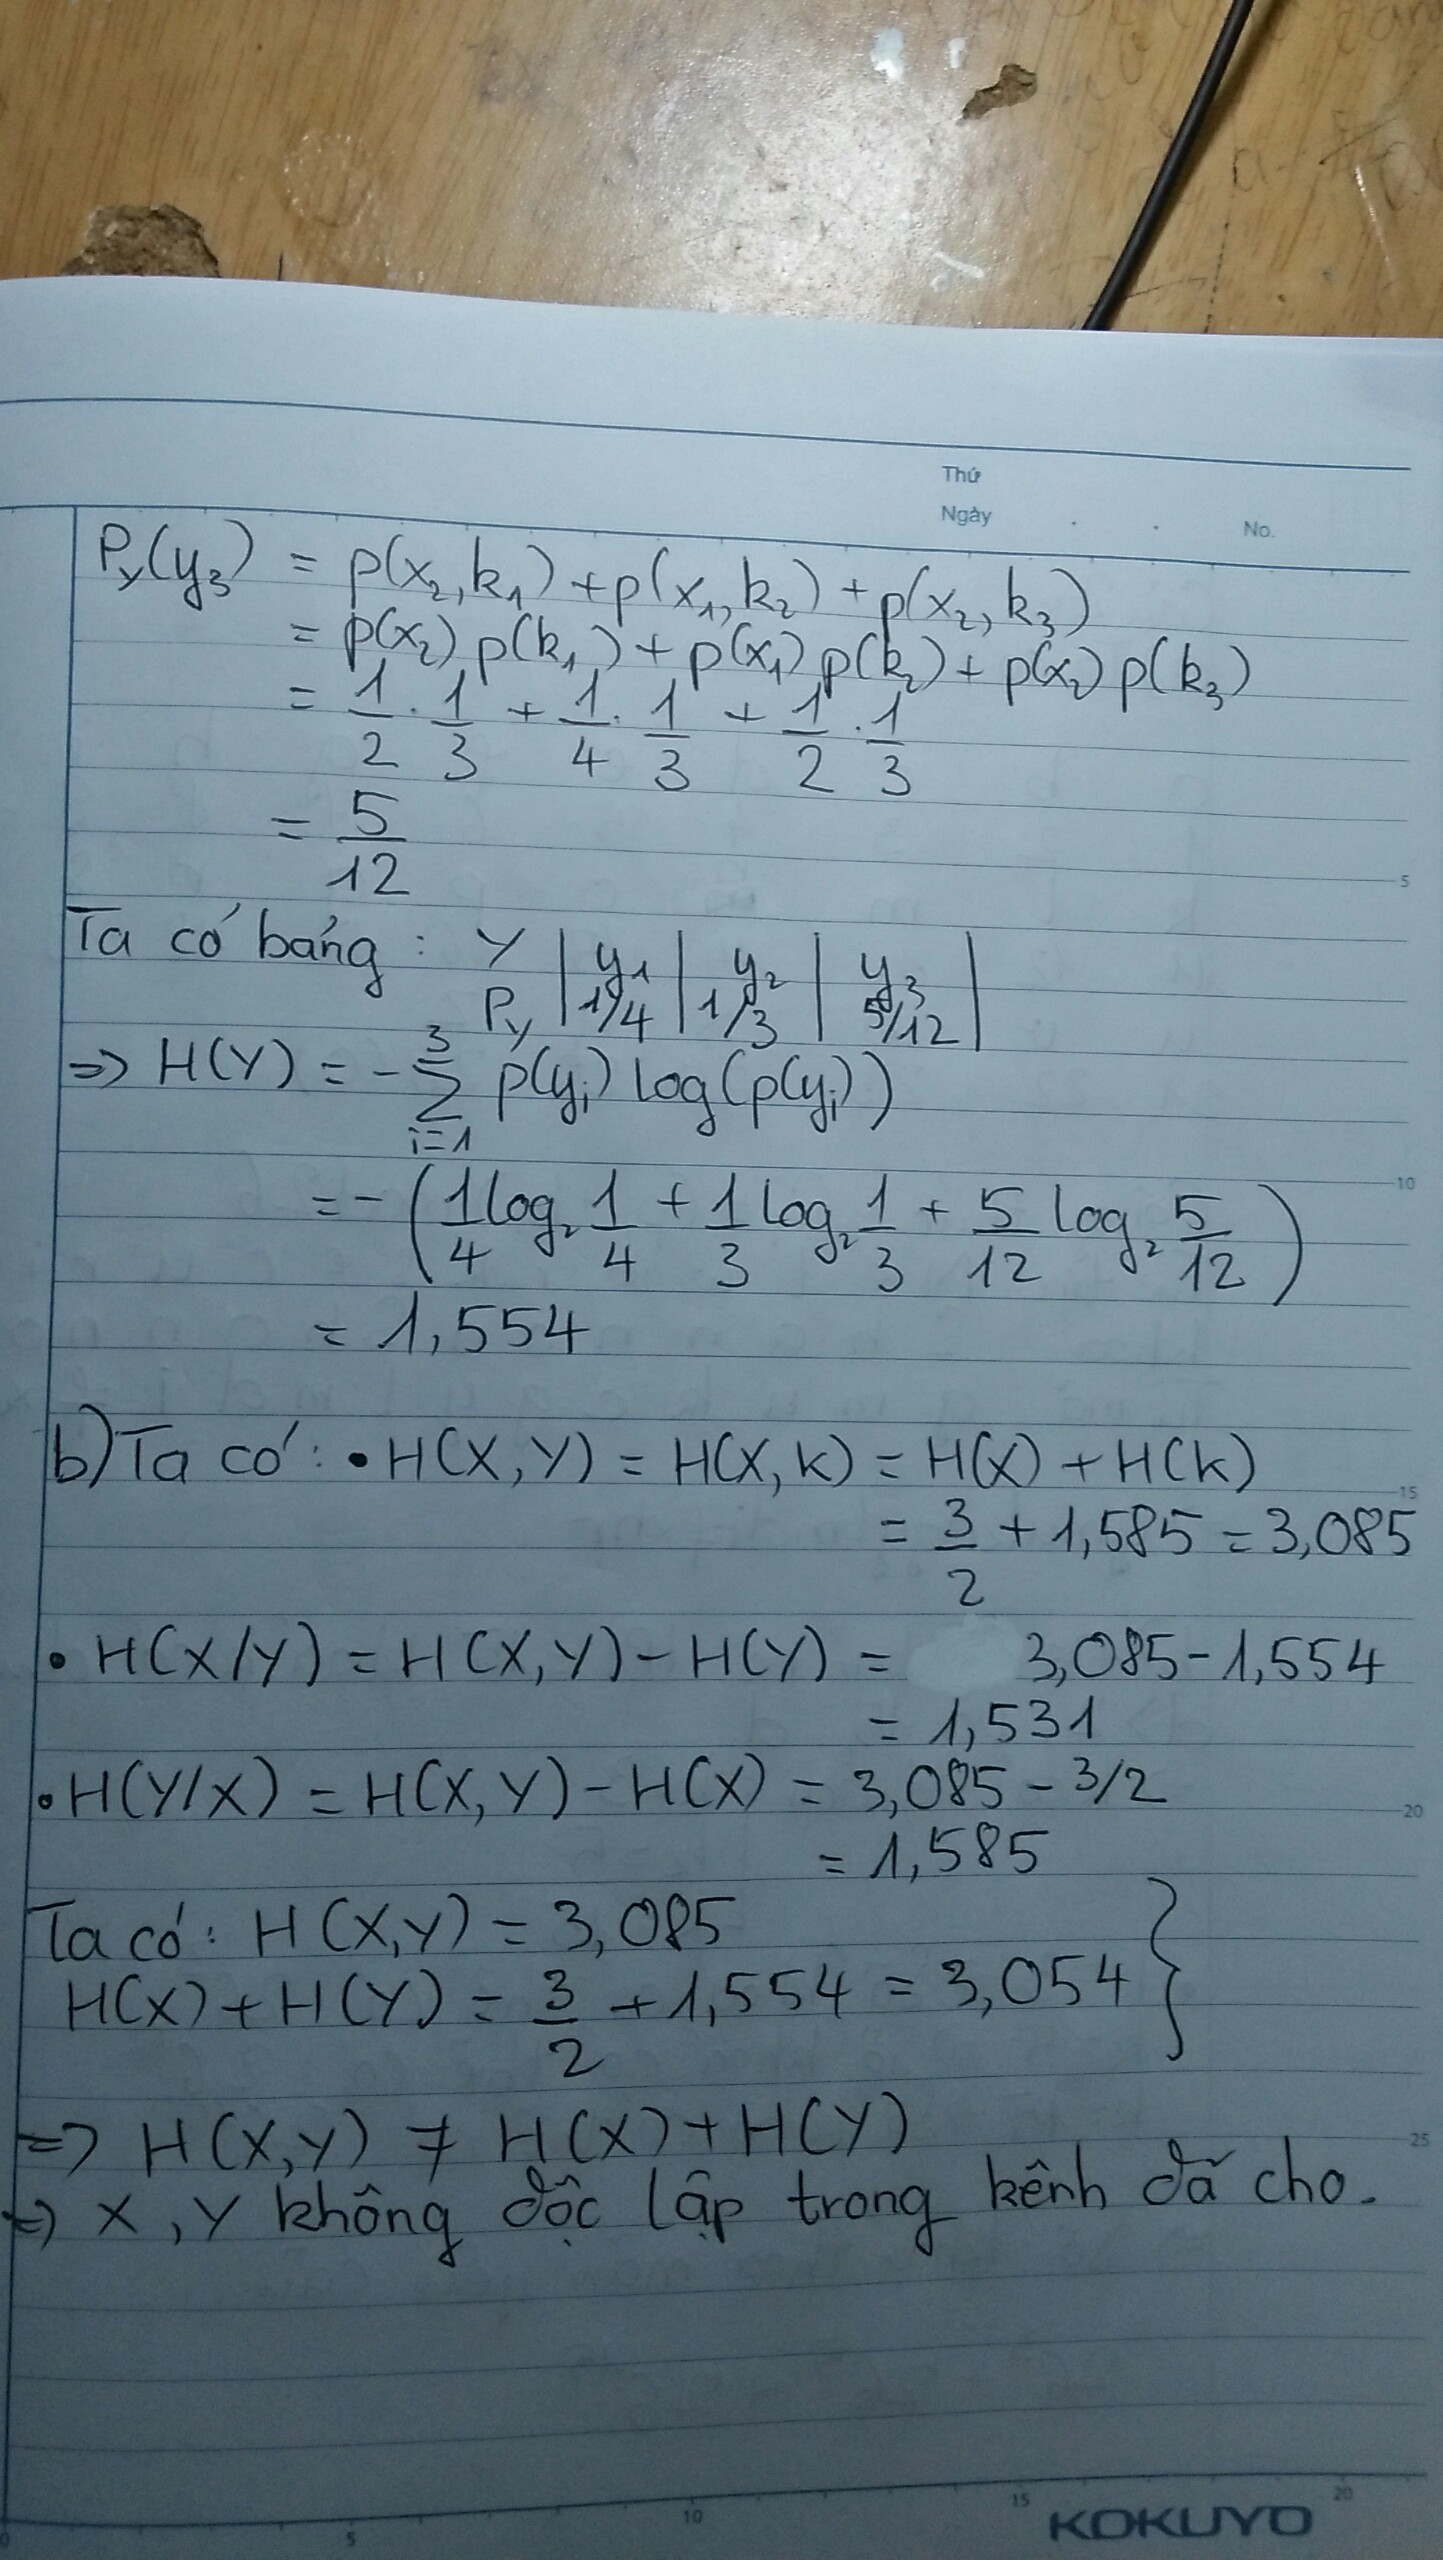 Thứ
Ngày . . No.
P_Y(y₃) = p(x₂,k₁)+p(x₁,k₂)+p(x₂,k₃)
= p(x₂)p(k₁)+p(x₁)p(k₂)+p(x₂)p(k₃)
= 1/2 . 1/3 + 1/4 . 1/3 + 1/2 . 1/3
= 5/12
5
Ta có bảng: Y | y₁ | y₂ | y₃ |
P_Y | 1/4 | 1/3 | 5/12 |
=> H(Y) = -∑_{i=1}^{3} p(yᵢ) log(p(yᵢ))
= -(1/4 log₂ 1/4 + 1/3 log₂ 1/3 + 5/12 log₂ 5/12)
10
= 1,554
b) Ta có: • H(X,Y) = H(X,K) = H(X)+H(K)
15
= 3/2 + 1,585 = 3,085
• H(X/Y) = H(X,Y)-H(Y) = 3,085-1,554
= 1,531
• H(Y/X) = H(X,Y)-H(X) = 3,085-3/2
20
= 1,585
Ta có: H(X,Y) = 3,085
H(X)+H(Y) = 3/2 +1,554 = 3,054 }
=> H(X,Y) ≠ H(X)+H(Y)
25
=> X, Y không độc lập trong kênh đã cho.
0 5 10 15 20
KOKUYO